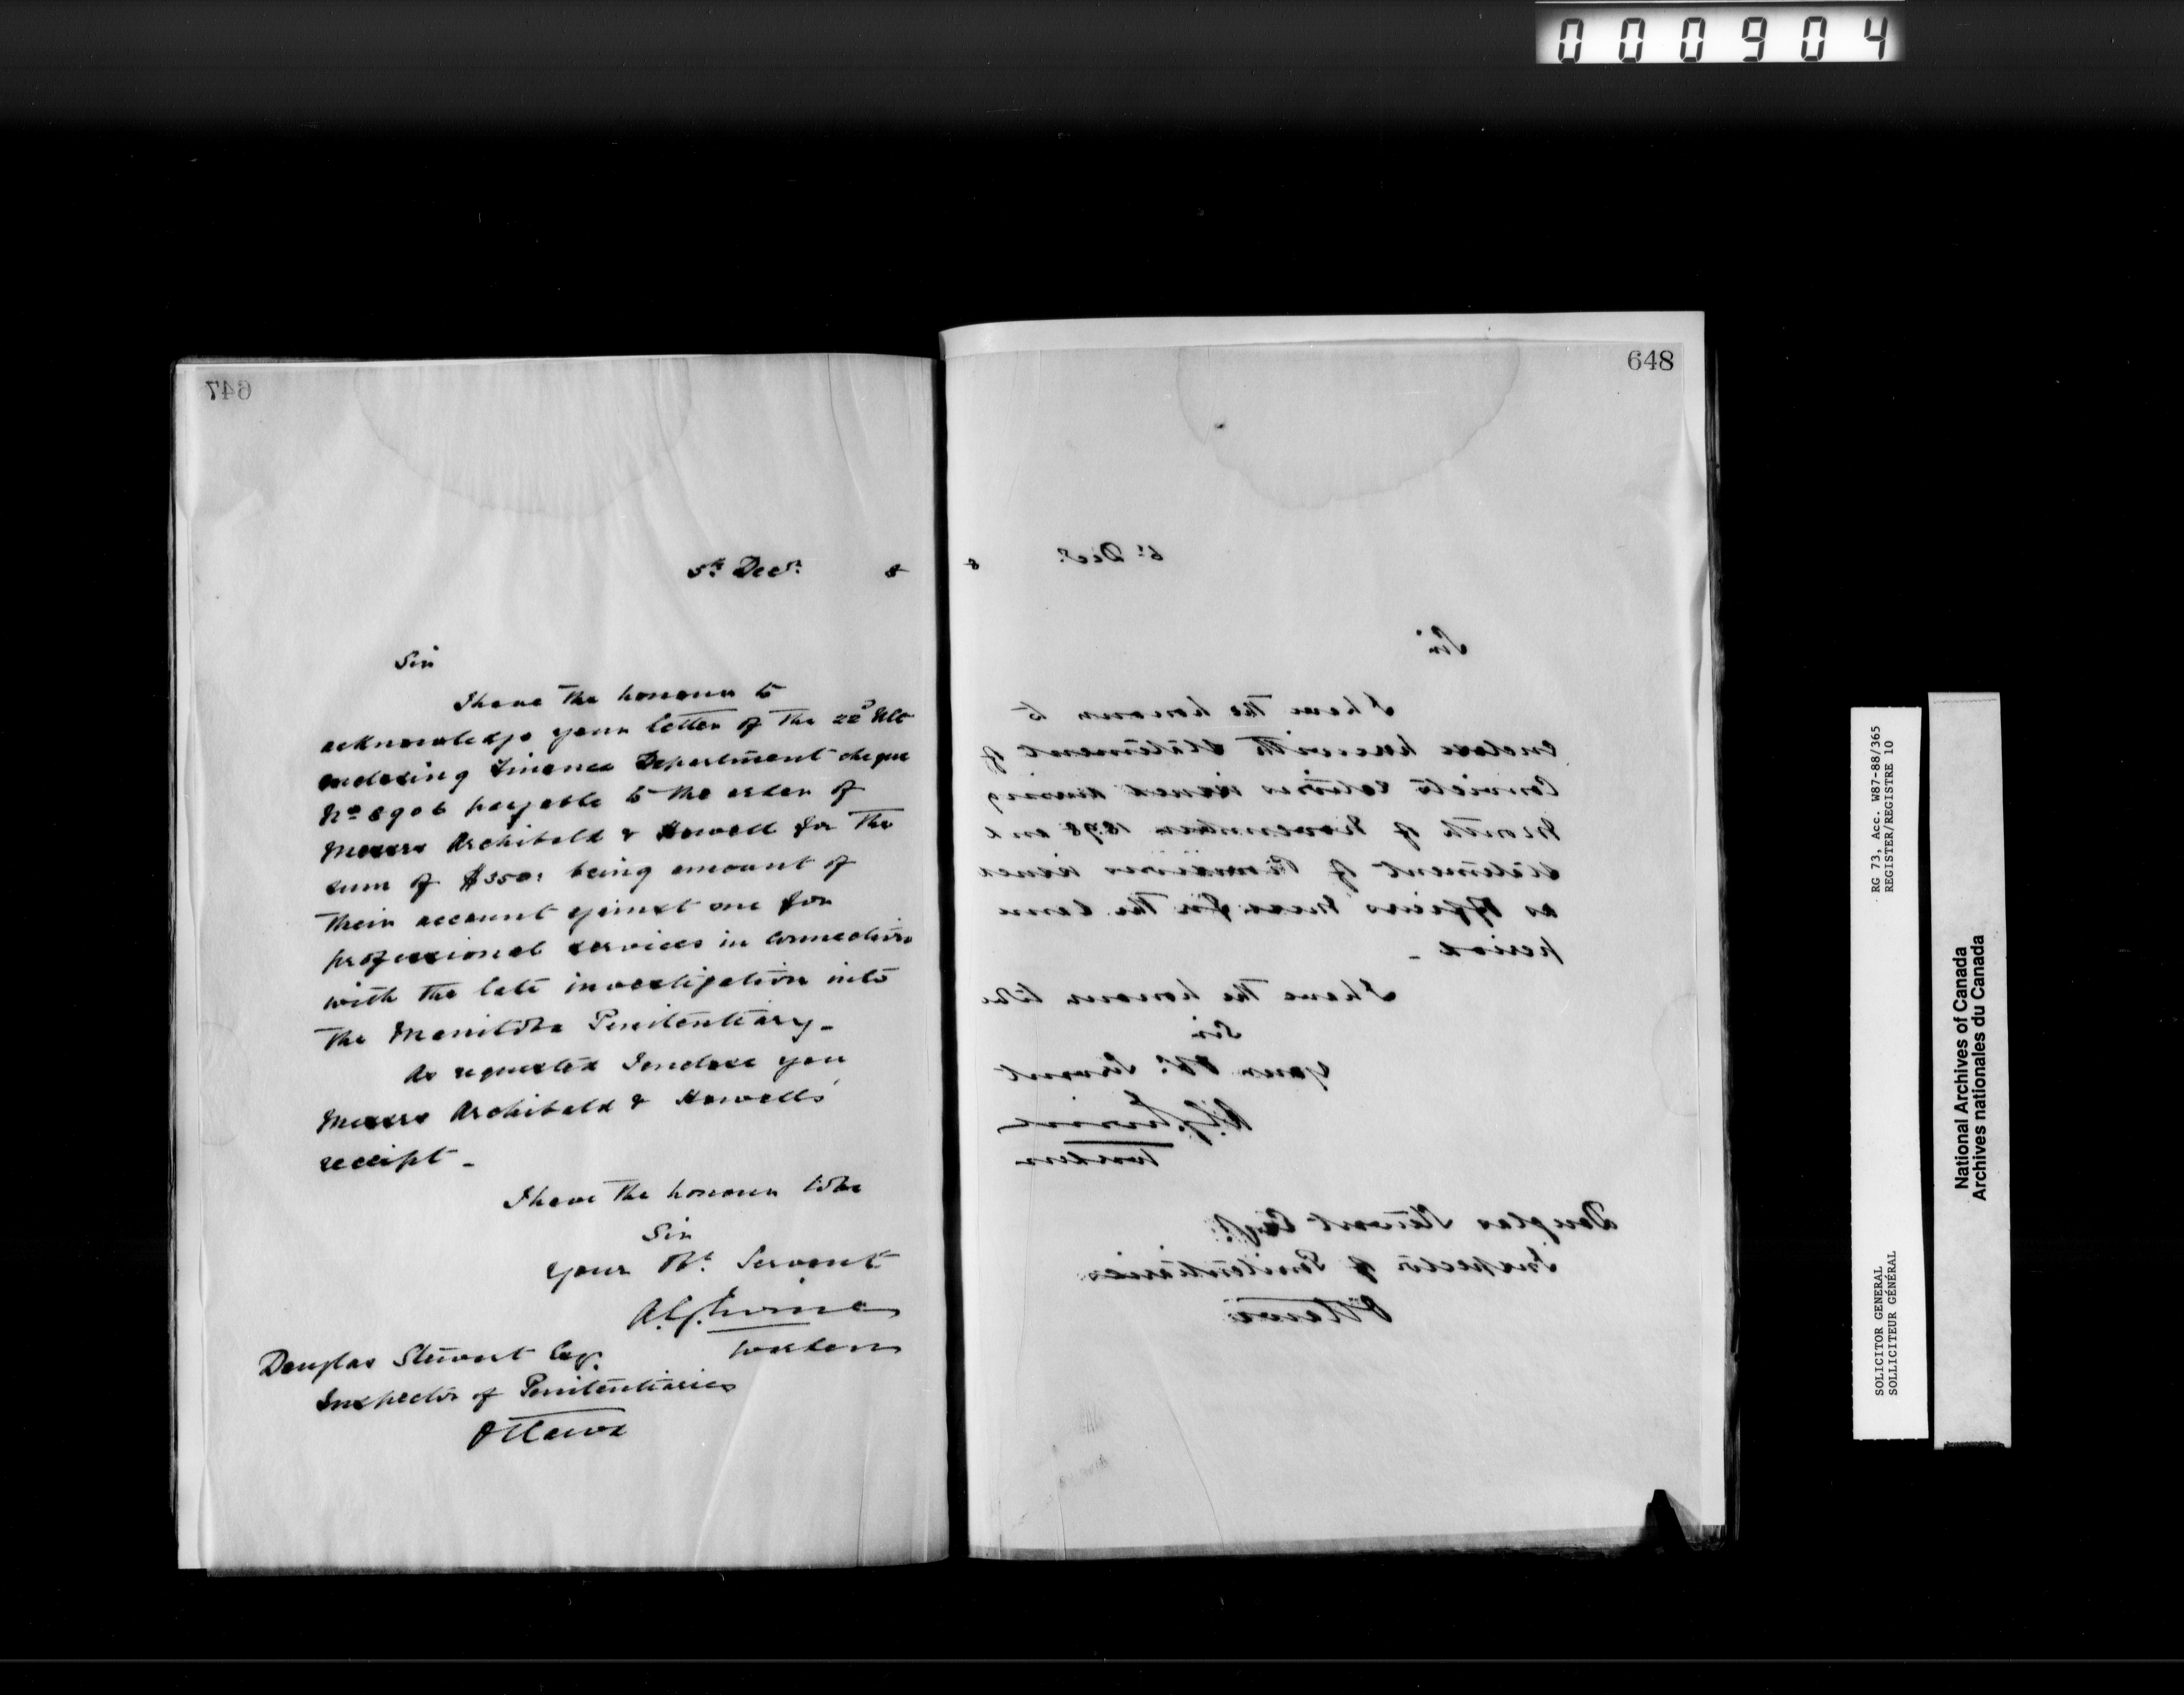 000904
647
5th Decr. 8
Sir
I have the honour to
acknowledge your letter of the 22d Ulto
enclosing Finance Department cheque
No 8906 payable to the order of
Messrs Archibald & Howell for the
sum of $350: being amount of
their account against me for
professional services in connection
with the late investigation into
the Manitoba Penitentiary_
As requested I enclose you
Messrs Archibald & Howell's
receipt_
I have the honour to be
Sir
Your Obt. Servant
A.G. Irvine
Warden
Douglas Stewart Esq.
Inspector of Penitentiaries
Ottawa
648
6t Decr. 8
Sir
I have the honour to
enclose herewith statement of
Convicts rations issued during
Month of November 1898 and
statement of Provisions issued
as Officers Mess for the same
period_
I have the honour to be
Sir
Your Obt. Servant
A.G. Irvine
Warden
Douglas Stewart Esqr.
Inspector of Penitentiaries
Ottawa
RG 73, Acc. W87-88/365
REGISTER/REGISTRE 10
SOLICITOR GENERAL
SOLLICITEUR GÉNÉRAL
National Archives of Canada
Archives nationales du Canada